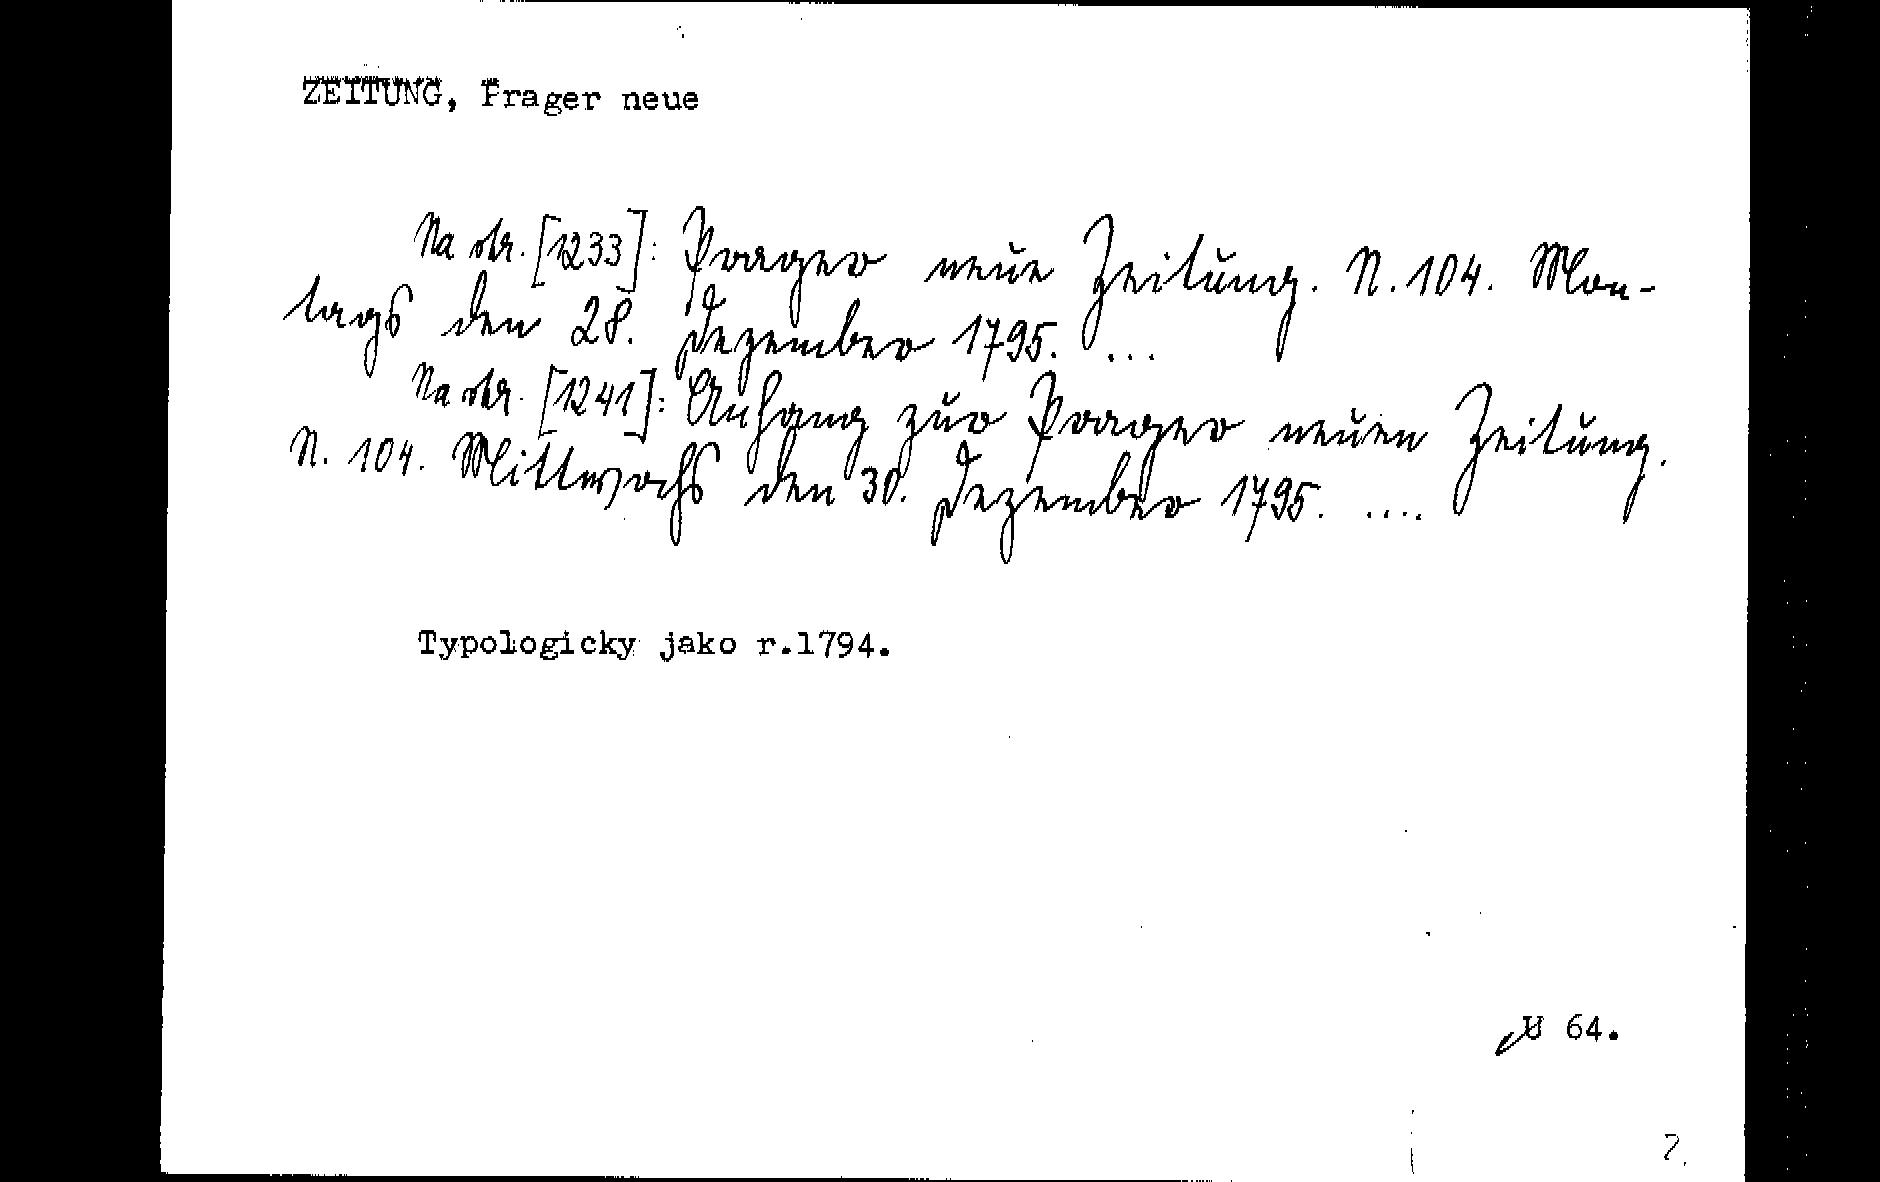 ZEITUNG, Prager neue
Na str. [1233]: Prager neue Zeitung. N. 104. Mon-
tags den 28. Dezember 1795. ...
Na str. [1241]: Anhang zur Prager neuen Zeitung.
N. 104. Mittwochs den 30. Dezember 1795. ....
Typologicky jako r.1794.
U 64.
2.